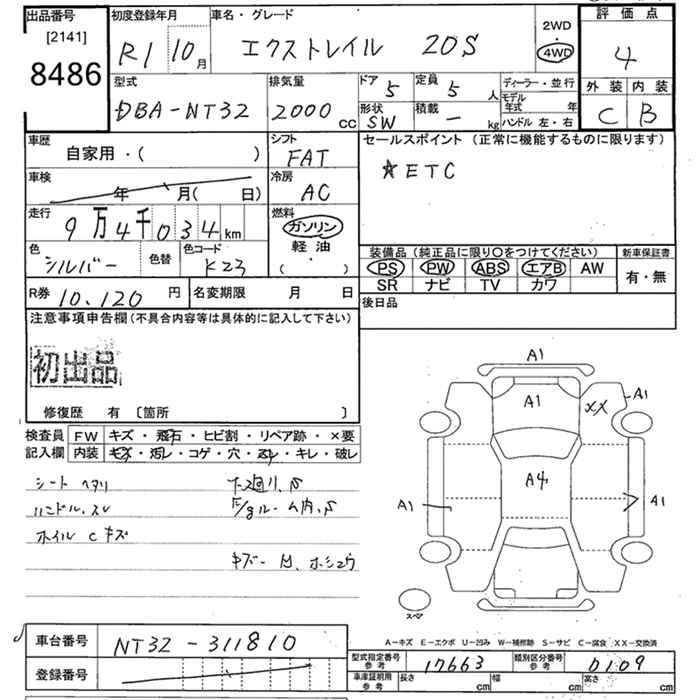 出品番号
[2141]
8486
初度登録年月
R1 10月
車名・グレード
エクストレイル 20S
2WD
4WD
評価点
4
外装 内装
C B
型式
DBA-NT32
排気量
2000 cc
ドア 5
定員 5 人
形状 SW
積載 - kg
ディーラー・並行
モデル年式 年
ハンドル 左・右
車歴
自家用・( )
シフト
FAT
セールスポイント (正常に機能するものに限ります)
☆ETC
車検
年 月( 日)
冷房
AC
走行
9万4千034km
燃料
ガソリン
軽油
( ・ )
色
シルバー
色替
色コード
K23
装備品(純正品に限り○をつけてください)
PS PW ABS エアB AW
SR ナビ TV カワ
新車保証書
有・無
R券 10,120 円
名変期限 月 日
後日品
注意事項申告欄(不具合内容等は具体的に記入して下さい)
初出品
修復歴 有 〔箇所 〕
検査員
記入欄
FW キズ・飛石・ヒビ割・リペア跡・×要
内装 キズ・汚レ・コゲ・穴・スレ・キレ・破レ
シート ヘタリ
ハンドル.スレ
ホイル Cキズ
A1
A1
XX
A1
A4
A1
A1
スペア
A-キズ E-エクボ U-凹み W-補修跡 S-サビ C-腐食 XX-交換済
車台番号
NT32-311810
登録番号
型式指定番号
参考
17663
類別区分番号
参考
0109
車庫証明用
参考
長さ cm
幅 cm
高さ cm